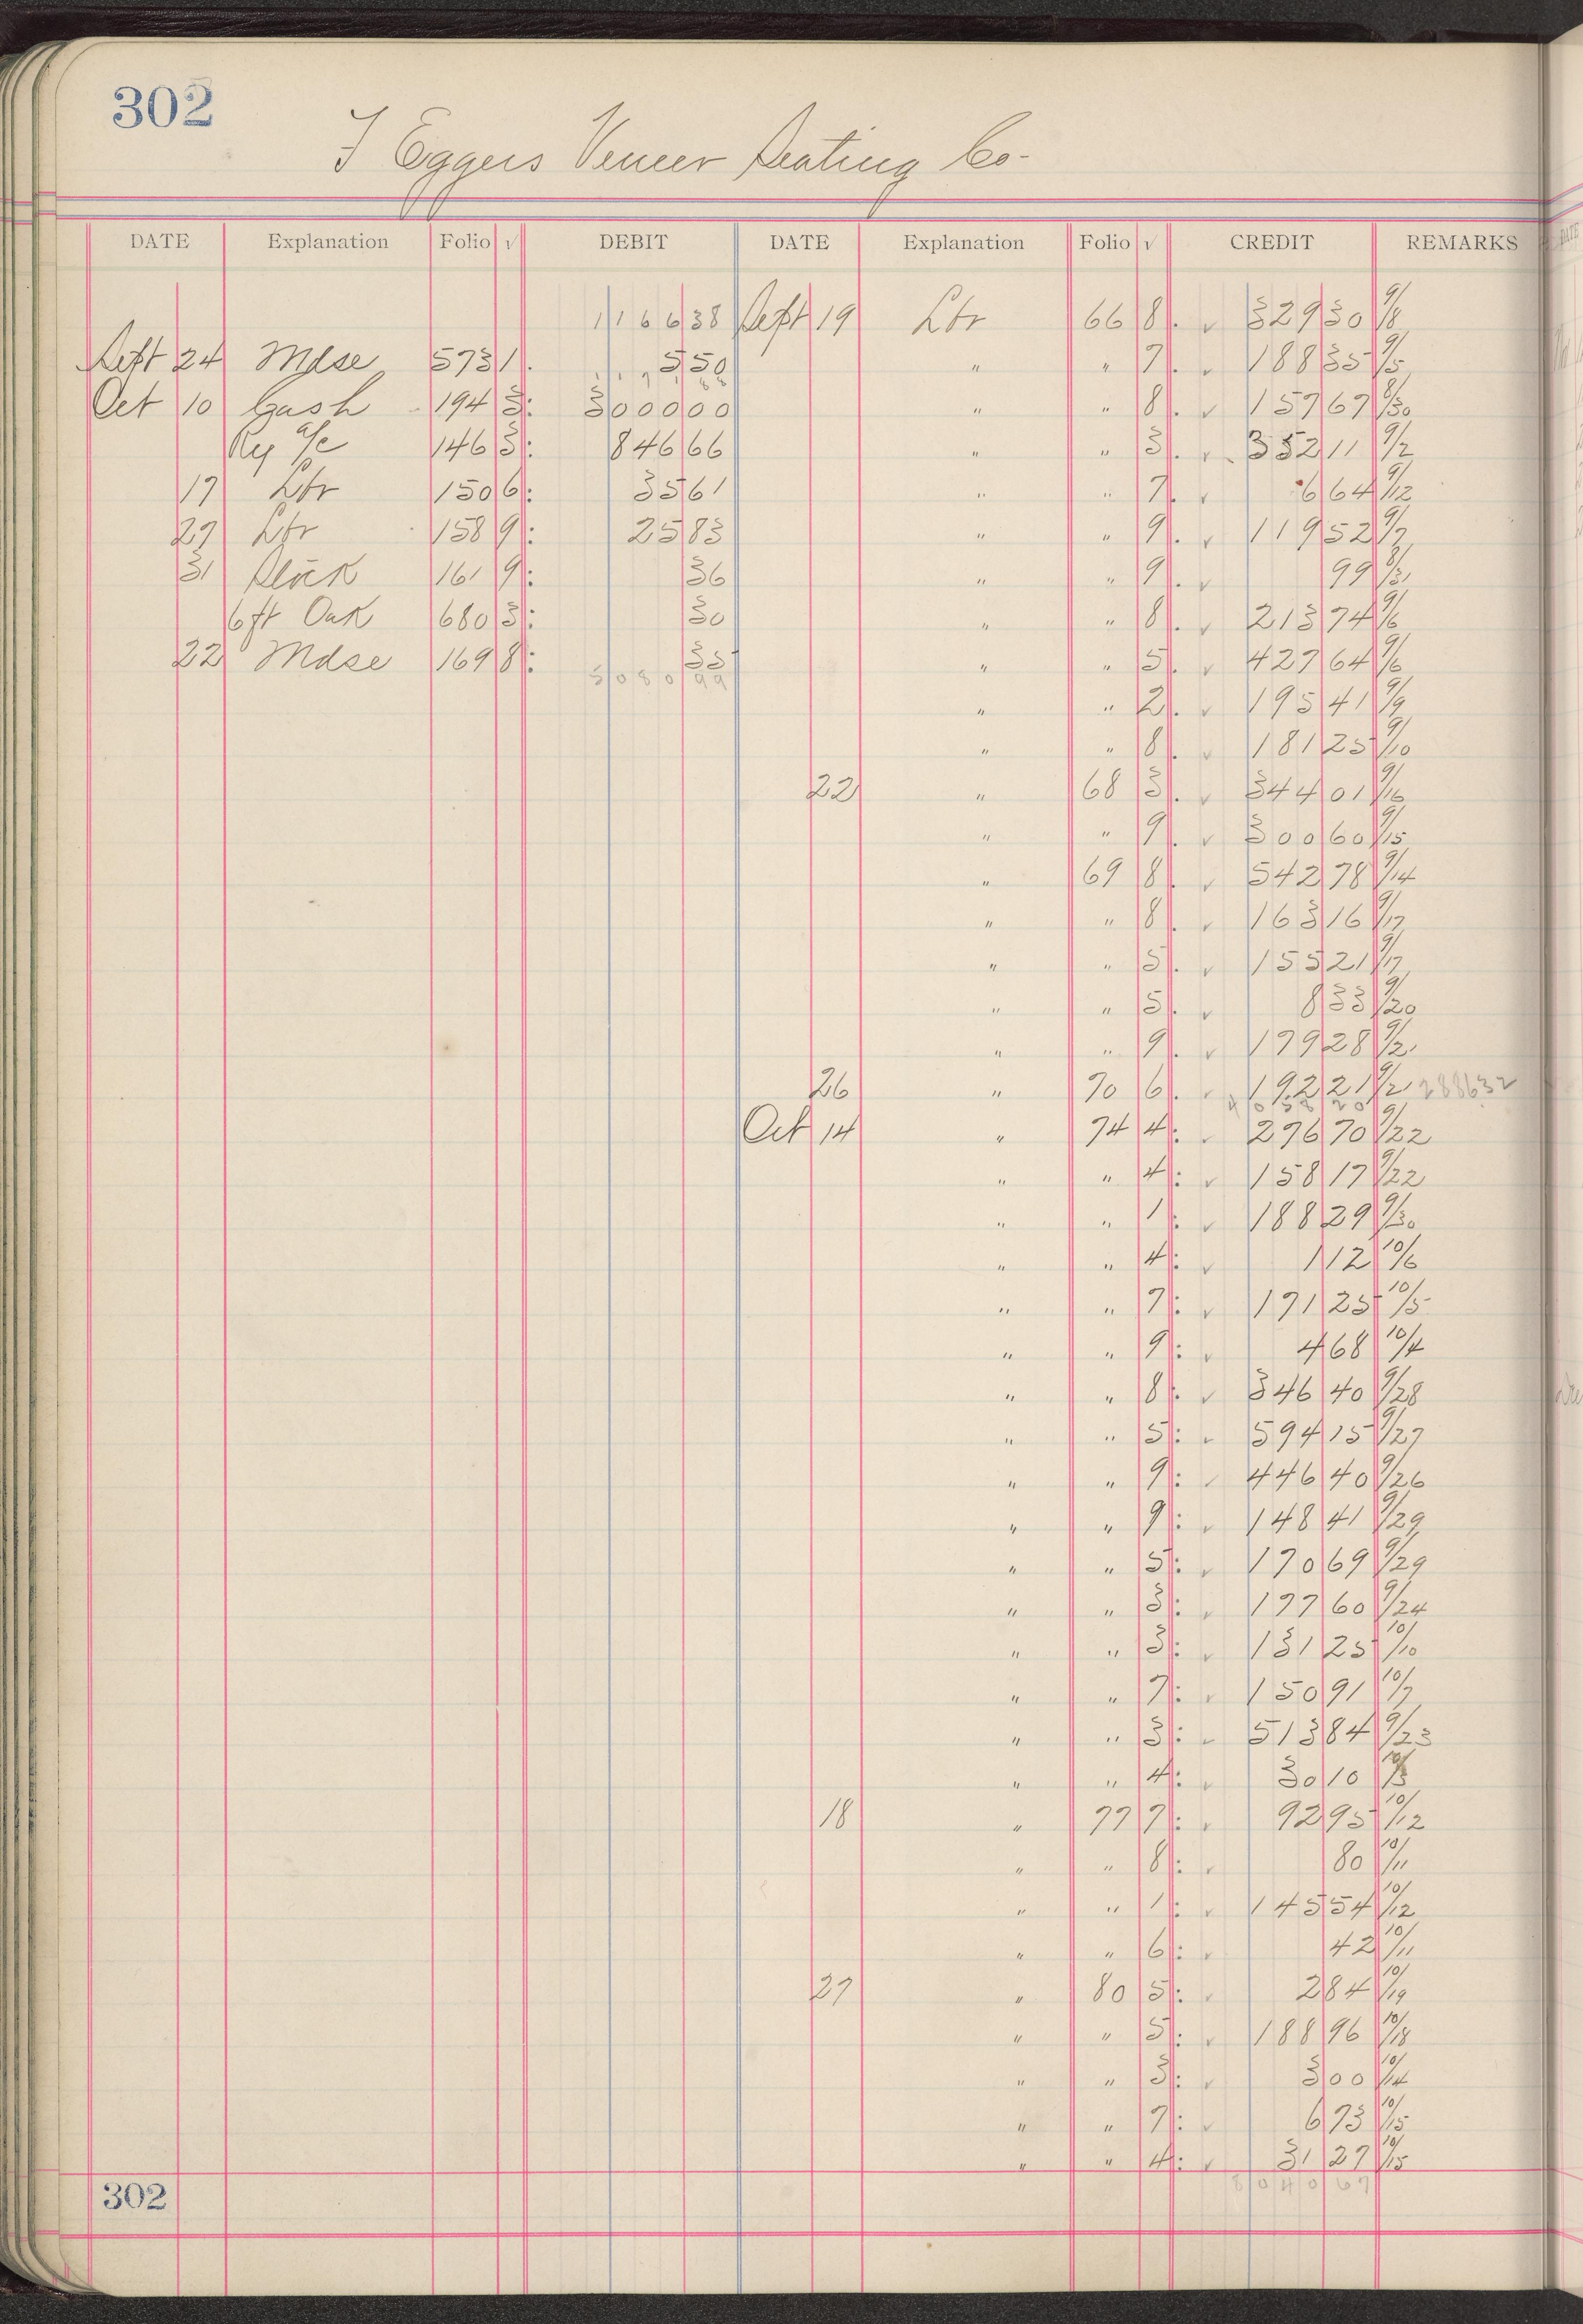 302
F Eggers Veneer Seating Co-
DATE Explanation Folio √ DEBIT DATE Explanation Folio √ CREDIT REMARKS
1166 38 Sept 19 Lbr 66 8 . ✓ 329 30 9/8
Sept 24 Mdse 573 1 . 5 50 " " 7 . ✓ 188 35 9/5
Oct 10 Cash 194 3 : 3000 00 " " 8 . ✓ 157 67 8/30
Ry a/c 146 3 : 846 66 " " 3 . ✓ 352 11 9/2
17 Lbr 150 6 : 35 61 " " 7 . ✓ 6 64 9/12
27 Lbr 158 9 : 25 83 " " 9 . ✓ 119 52 9/7
31 Stock 161 9 : 36 " " 9 . ✓ 99 8/31
6 ft Oak 680 3 : 30 " " 8 . ✓ 213 74 9/6
22 Mdse 169 8 : 35 " " 5 . ✓ 427 64 9/6
5080 99
" " 2 . ✓ 195 41 9/9
" " 8 . ✓ 181 25 9/10
22 " 68 3 . ✓ 344 01 9/16
" " 9 . ✓ 300 60 9/15
" 69 8 . ✓ 542 78 9/14
" " 8 . ✓ 163 16 9/17
" " 5 . ✓ 155 21 9/17
" " 5 . ✓ 8 33 9/20
" " 9 . ✓ 179 28 9/21
26 " 70 6 . ✓ 192 21 9/21 2886 32
4058 20
Oct 14 " 74 4 : ✓ 276 70 9/22
" " 4 : ✓ 158 17 9/22
" " 1 : ✓ 188 29 9/30
" " 4 : ✓ 1 12 10/6
" " 7 : ✓ 171 25 10/5
" " 9 : ✓ 4 68 10/4
" " 8 : ✓ 346 40 9/28
" " 5 : ✓ 594 15 9/27
" " 9 : ✓ 446 40 9/26
" " 9 : ✓ 148 41 9/29
" " 5 : ✓ 170 69 9/29
" " 3 : ✓ 177 60 9/24
" " 3 : ✓ 131 25 10/10
" " 7 : ✓ 150 91 10/7
" " 3 : ✓ 513 84 9/23
" " 4 : ✓ 30 10
18 " 77 7 : ✓ 92 95 10/12
" " 8 : ✓ 80 10/11
" " 1 : ✓ 145 54 10/12
" " 6 : ✓ 42 10/11
27 " 80 5 : ✓ 2 84 10/19
" " 5 : ✓ 188 96 10/18
" " 3 : ✓ 3 00 10/14
" " 7 : ✓ 6 73 10/15
" " 4 : ✓ 31 27 10/15
8040 67
302